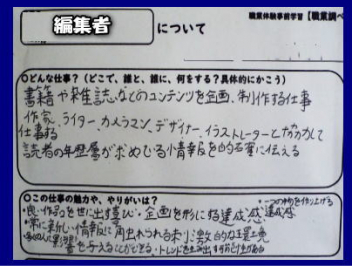 編集者
について
職業体験事前学習【職業調べ
○どんな仕事?(どこで、誰と、誰に、何をする?具体的にかこう)
書籍や雑誌などのコンテンツを企画、制作する仕事
作家、ライター、カメラマン、デザイナー、イラストレーターと協力して
仕事する
読者の年齢層が求めている情報を的確に伝える
○この仕事の魅力や、やりがいは?
・一つの物を作り上げる
達成感
・良い作品を世に出す喜び・企画を形にする達成感
・常に新しい情報に触れられる刺激的な環境
影響を与えることができる・トレンドを